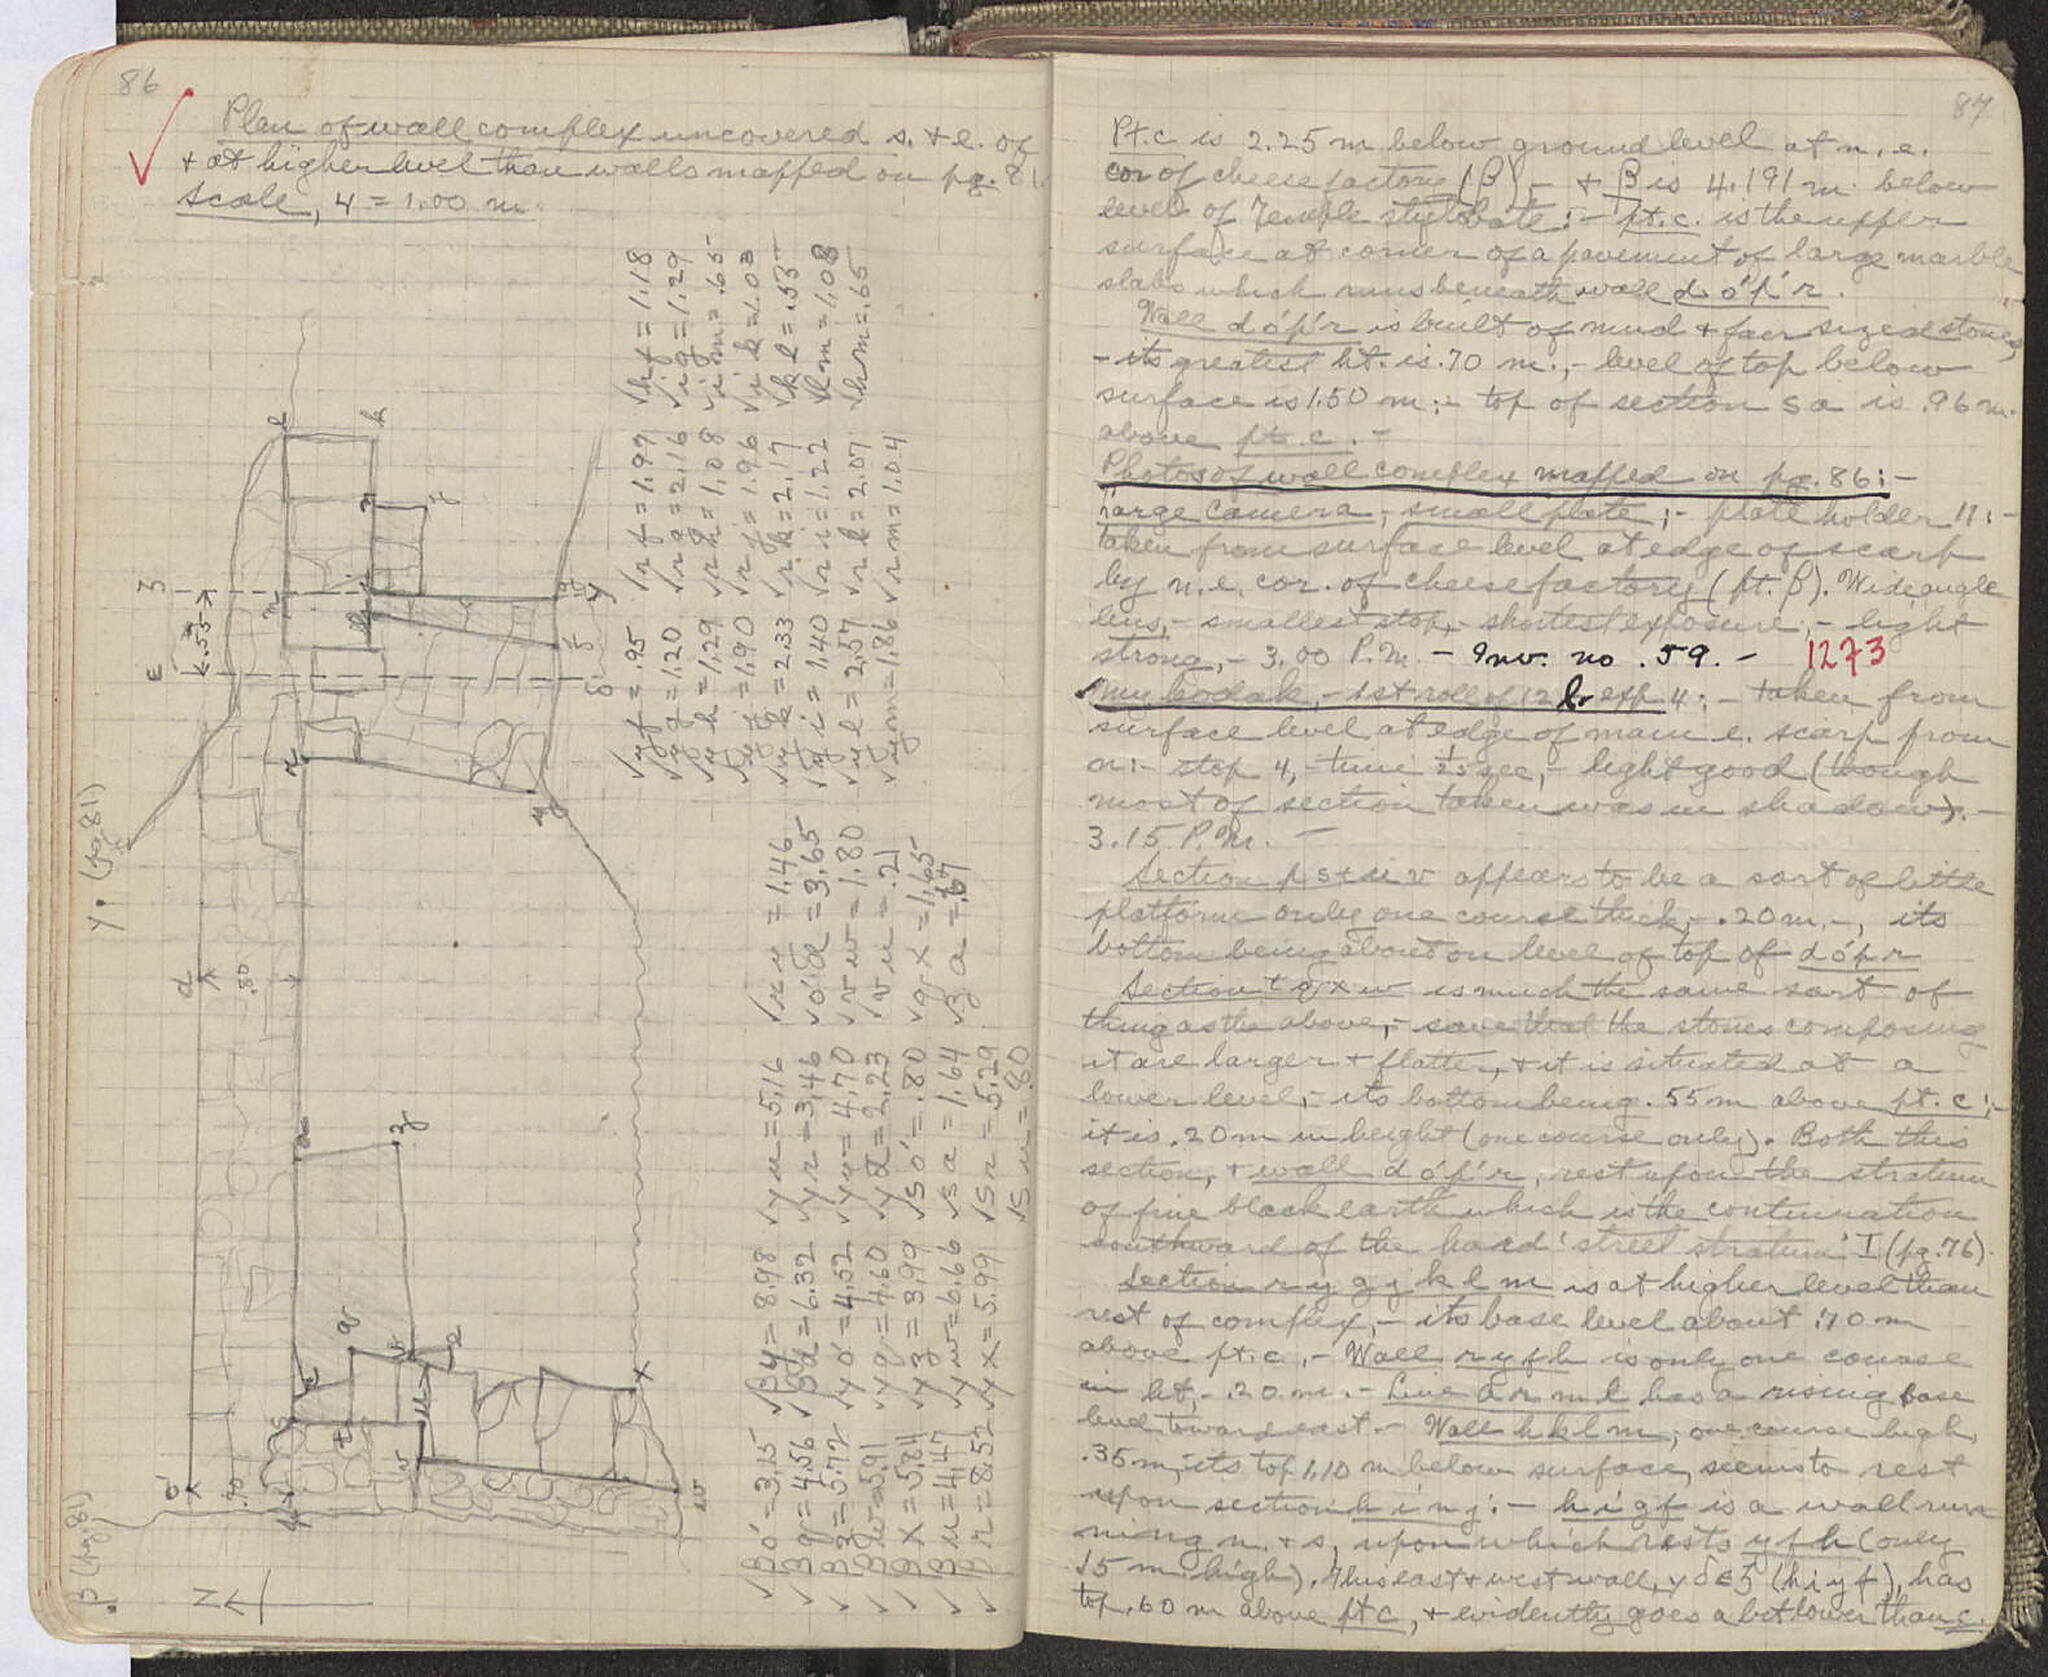 86
Plan of wall complex uncovered s. + e. of
+ at higher level than walls mapped on pg. 81.
Scale, 4 = 1.00 m.
√hf = 1.18
√ig = 1.29
√im = .65
√ik = 1.03
√kl = .55
√lm = 1.08
√hm = .65
√rf = 1.97
√rg = 2.16
√rh = 1.08
√rj = 1.96
√rk = 2.17
√ri = 1.22
√rl = 2.07
√rm = 1.04
√yf = .95
√yg = 1.20
√yh = 1.29
√yj = 1.90
√yk = 2.33
√yi = 1.40
√yl = 2.57
√ym = 1.86
√ry = 1.46
√o'd = 3.65
√vw = 1.80
√vu = .21
√qx = 1.65
√za = .67
√yu = 5.16
√yr = 3.46
√γy = 4.70
√γd = 2.23
√so' = .80
√sa = 1.64
√sr = 5.29
√su = .80
√βy = 8.98
√βd = 6.32
√γo' = 4.52
√γq = 4.60
√γz = 3.99
√γw = 6.66
√γx = 5.99
√βo' = 3.15
√βq = 4.56
√βz = 5.72
√βw = 5.91
√βx = 5.84
√βu = 4.47
√βr = 8.52
γ. (pg. 81)
β (pg. 81)
N
.55
.80
.70
87
Pt. c is 2.25 m below ground level at n. e.
cor of cheese factory (β), - + β is 4.191 m. below
level of Temple stylobate: - pt. c. is the upper
surface at corner of a pavement of large marble
slabs which runs beneath wall d o' p' r.
Wall d o' p' r is built of mud + fair sized stones,
- its greatest ht. is .70 m., - level of top below
surface is 1.50 m; - top of section s a is .96 m.
above pt. c. -
Photos of wall complex mapped on pg. 86: -
Large camera, - small plate; - plate holder 11: -
taken from surface level at edge of scarp
by n. e. cor. of cheese factory (pt. β). Wide angle
lens, - smallest stop, - shortest exposure, - light
strong, - 3.00 P.M. - Inv. no. 59. - 1273
√My kodak, - 1st roll of 12 exp 4; - taken from
surface level at edge of main e. scarp from
n: - stop 4, - time 1/25 sec, - light good (though
most of section taken was in shadow). -
3.15 P.M. -
Section p s t u v appears to be a sort of little
platform only one course thick, - .20 m, -, its
bottom being about on level of top of d o' p r
Section t q x w is much the same sort of
thing as the above, - save that the stones composing
it are larger + flatter, + it is situated at a
lower level, - its bottom being .55 m above pt. c; -
it is .20 m in height (one course only). Both this
section, + wall d o' p' r, rest upon the stratum
of fine black earth which is the continuation
southward of the hard 'street stratum' I (pg. 76).
Section r y g j k l m is at higher level than
rest of complex, - its base level about .70 m
above pt. c, - Wall r y f h is only one course
in ht, - .20 m. - Line a r m l has a rising base
level toward east. - Wall h k l m, one course high,
.35 m, its top 1.10 m below surface, seems to rest
upon section h i n j: - h i g f is a wall run
ning n. + s, upon which rests y f h (only
.15 m. high). This east + west wall, γ δ ε ζ (h i y f), has
top .60 m above pt c, + evidently goes a bit lower than c.